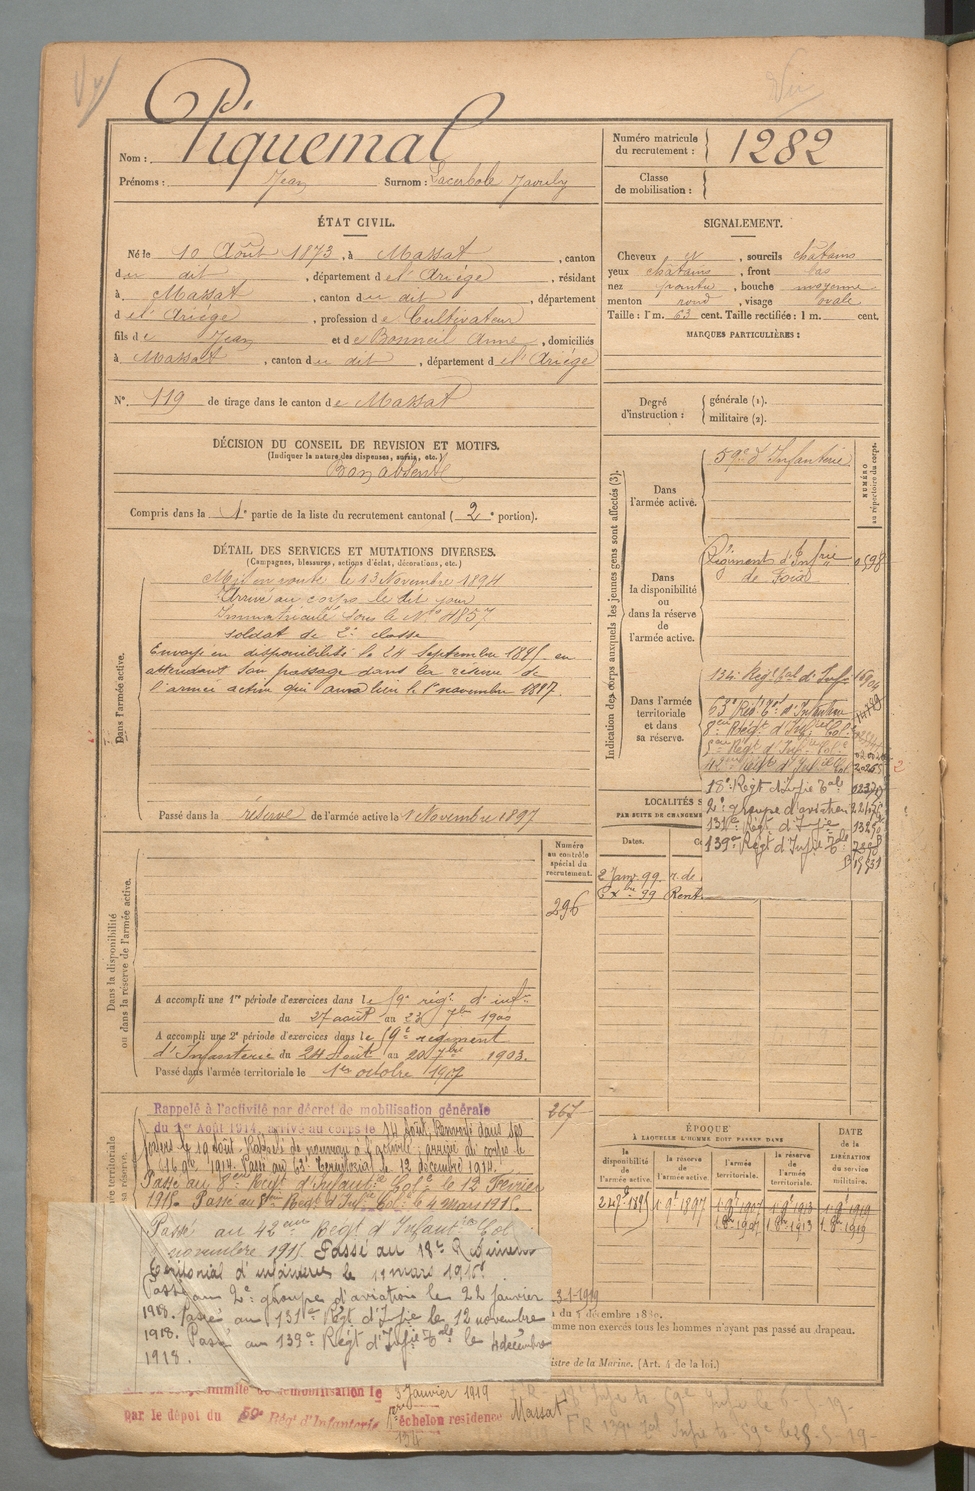 Vu
Nom : Piquemal
Prénoms : Jean Surnom : Lacerbole
Numéro matricule du recrutement : 1282
Classe de mobilisation :
ÉTAT CIVIL.
Né le 10 Août 1873, à Massat, canton
du dit, département de l'Ariége, résidant
à Massat, canton du dit, département
d el'Ariége, profession de Cultivateur
fils de Jean et de Bonneil Anne, domiciliés
à Massat, canton du dit, département de l'Ariége
N° 119 de tirage dans le canton de Massat
SIGNALEMENT.
Cheveux et, sourcils chatains
yeux chatains, front bas
nez pointu, bouche moyenne
menton rond, visage ovale
Taille : 1 m. 63 cent. Taille rectifiée : 1 m. cent.
MARQUES PARTICULIÈRES :
Degré d'instruction : générale (1).
militaire (2).
DÉCISION DU CONSEIL DE REVISION ET MOTIFS.
(Indiquer la nature des dispenses, sursis, etc.)
Bon absent
Compris dans la 1e partie de la liste du recrutement cantonal (2e portion).
DÉTAIL DES SERVICES ET MUTATIONS DIVERSES.
(Campagnes, blessures, actions d'éclat, décorations, etc.)
Dans l'armée active.
Mis en route le 13 Novembre 1894
Arrivé au corps le dit jour
Immatriculé sous le N° 4857
soldat de 2e classe
Envoyé en disponibilité le 24 Septembre 1895 en
attendant son passage dans la réserve de
l'armée active qui aura lieu le 1er novembre 1897.
Passé dans la réserve de l'armée active le 1 Novembre 1897
Indication des corps auxquels les jeunes gens sont affectés (3).
NUMÉRO au répertoire du corps.
Dans l'armée active.
59e d'Infanterie
Dans la disponibilité ou dans la réserve de l'armée active.
Régiment d'Infrie
de Foix
Dans l'armée territoriale et dans sa réserve.
134e Régt tal d'Infie
63e Régt Tal d'Infanterie
8eme Régt d'Inf. Col.
5eme Régt d'Infie Col.e
42eme Régt d'Infie Col.
18e Régt d'Infie Tal
2e groupe d'aviation
131e Régt d'Infie
139e Régt d'Infie Tale
LOCALITÉS S
PAR SUITE DE CHANGEME
Dates.
2 Janv. 99 r. de
Xbre 99 Rent
Numéro au contrôle spécial du recrutement.
296
Dans la disponibilité ou dans la réserve de l'armée active.
A accompli une 1re période d'exercices dans le 59e régt d'inf
du 27 août au 23 7bre 1900
A accompli une 2e période d'exercices dans le 59e régiment
d'Infanterie du 24 Août au 20 7bre 1903.
Passé dans l'armée territoriale le 1er octobre 1907
267
Rappelé à l'activité par décret de mobilisation générale
du 1er Août 1914, arrivé au corps le 14 août, Renvoyé dans ses
foyers le 19 août. Rappelé de nouveau à l'activité ; arrivé au corps le
16 9bre 1914. Passé au 63e Territorial le 12 décembre 1914.
Passé au 8eme Régt d'Infantie Cole le 12 Février
1915. Passé au 5eme Régt d'Infie Cole le 4 Mars 1915.
Passé au 42eme Régt d'Infantie Col
novembre 1915. Passé au 18e Régiment
Territorial d'infanterie le 11 mars 1916.
Passé au 2e groupe d'aviation le 22 janvier
1918. Passé au 131e Régt d'Infie le 12 novembre
1918. Passé au 139e Régt d'Infie Tale le 4 décembre
1918.
ÉPOQUE
À LAQUELLE L'HOMME DOIT PASSER DANS
la disponibilité de l'armée active.
la réserve de l'armée active.
l'armée territoriale.
la réserve de l'armée territoriale.
DATE de la LIBÉRATION du service militaire.
24 7bre 1895 1 9bre 1897 1 9bre 1907 1 9bre 1913 1 9bre 1919
1 8bre 1907 1 8bre 1913 1 8bre 1919
3-1-1919
mme non exercés tous les hommes n'ayant pas passé au drapeau.
istre de la Marine. (Art. 4 de la loi.)
illimité de démobilisation le 3 Janvier 1919
par le dépôt du 59e Rég. d'Infanterie échelon résidence Massat
134
FR 139e tal Infie